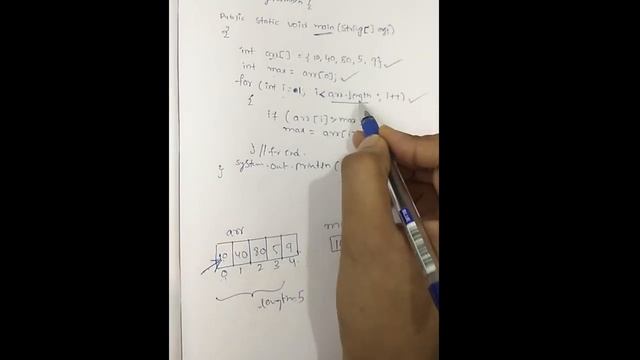 Public static void main (String[] args)
{
int arr[] = {10, 40, 80, 5, 9};
int max = arr[0];
for (int i=1; i< arr.length ; i++)
{
if (arr[i] > max
max = arr[i
} // for end.
} System.out.println (
arr
10 40 80 5 9
0 1 2 3 4
length=5